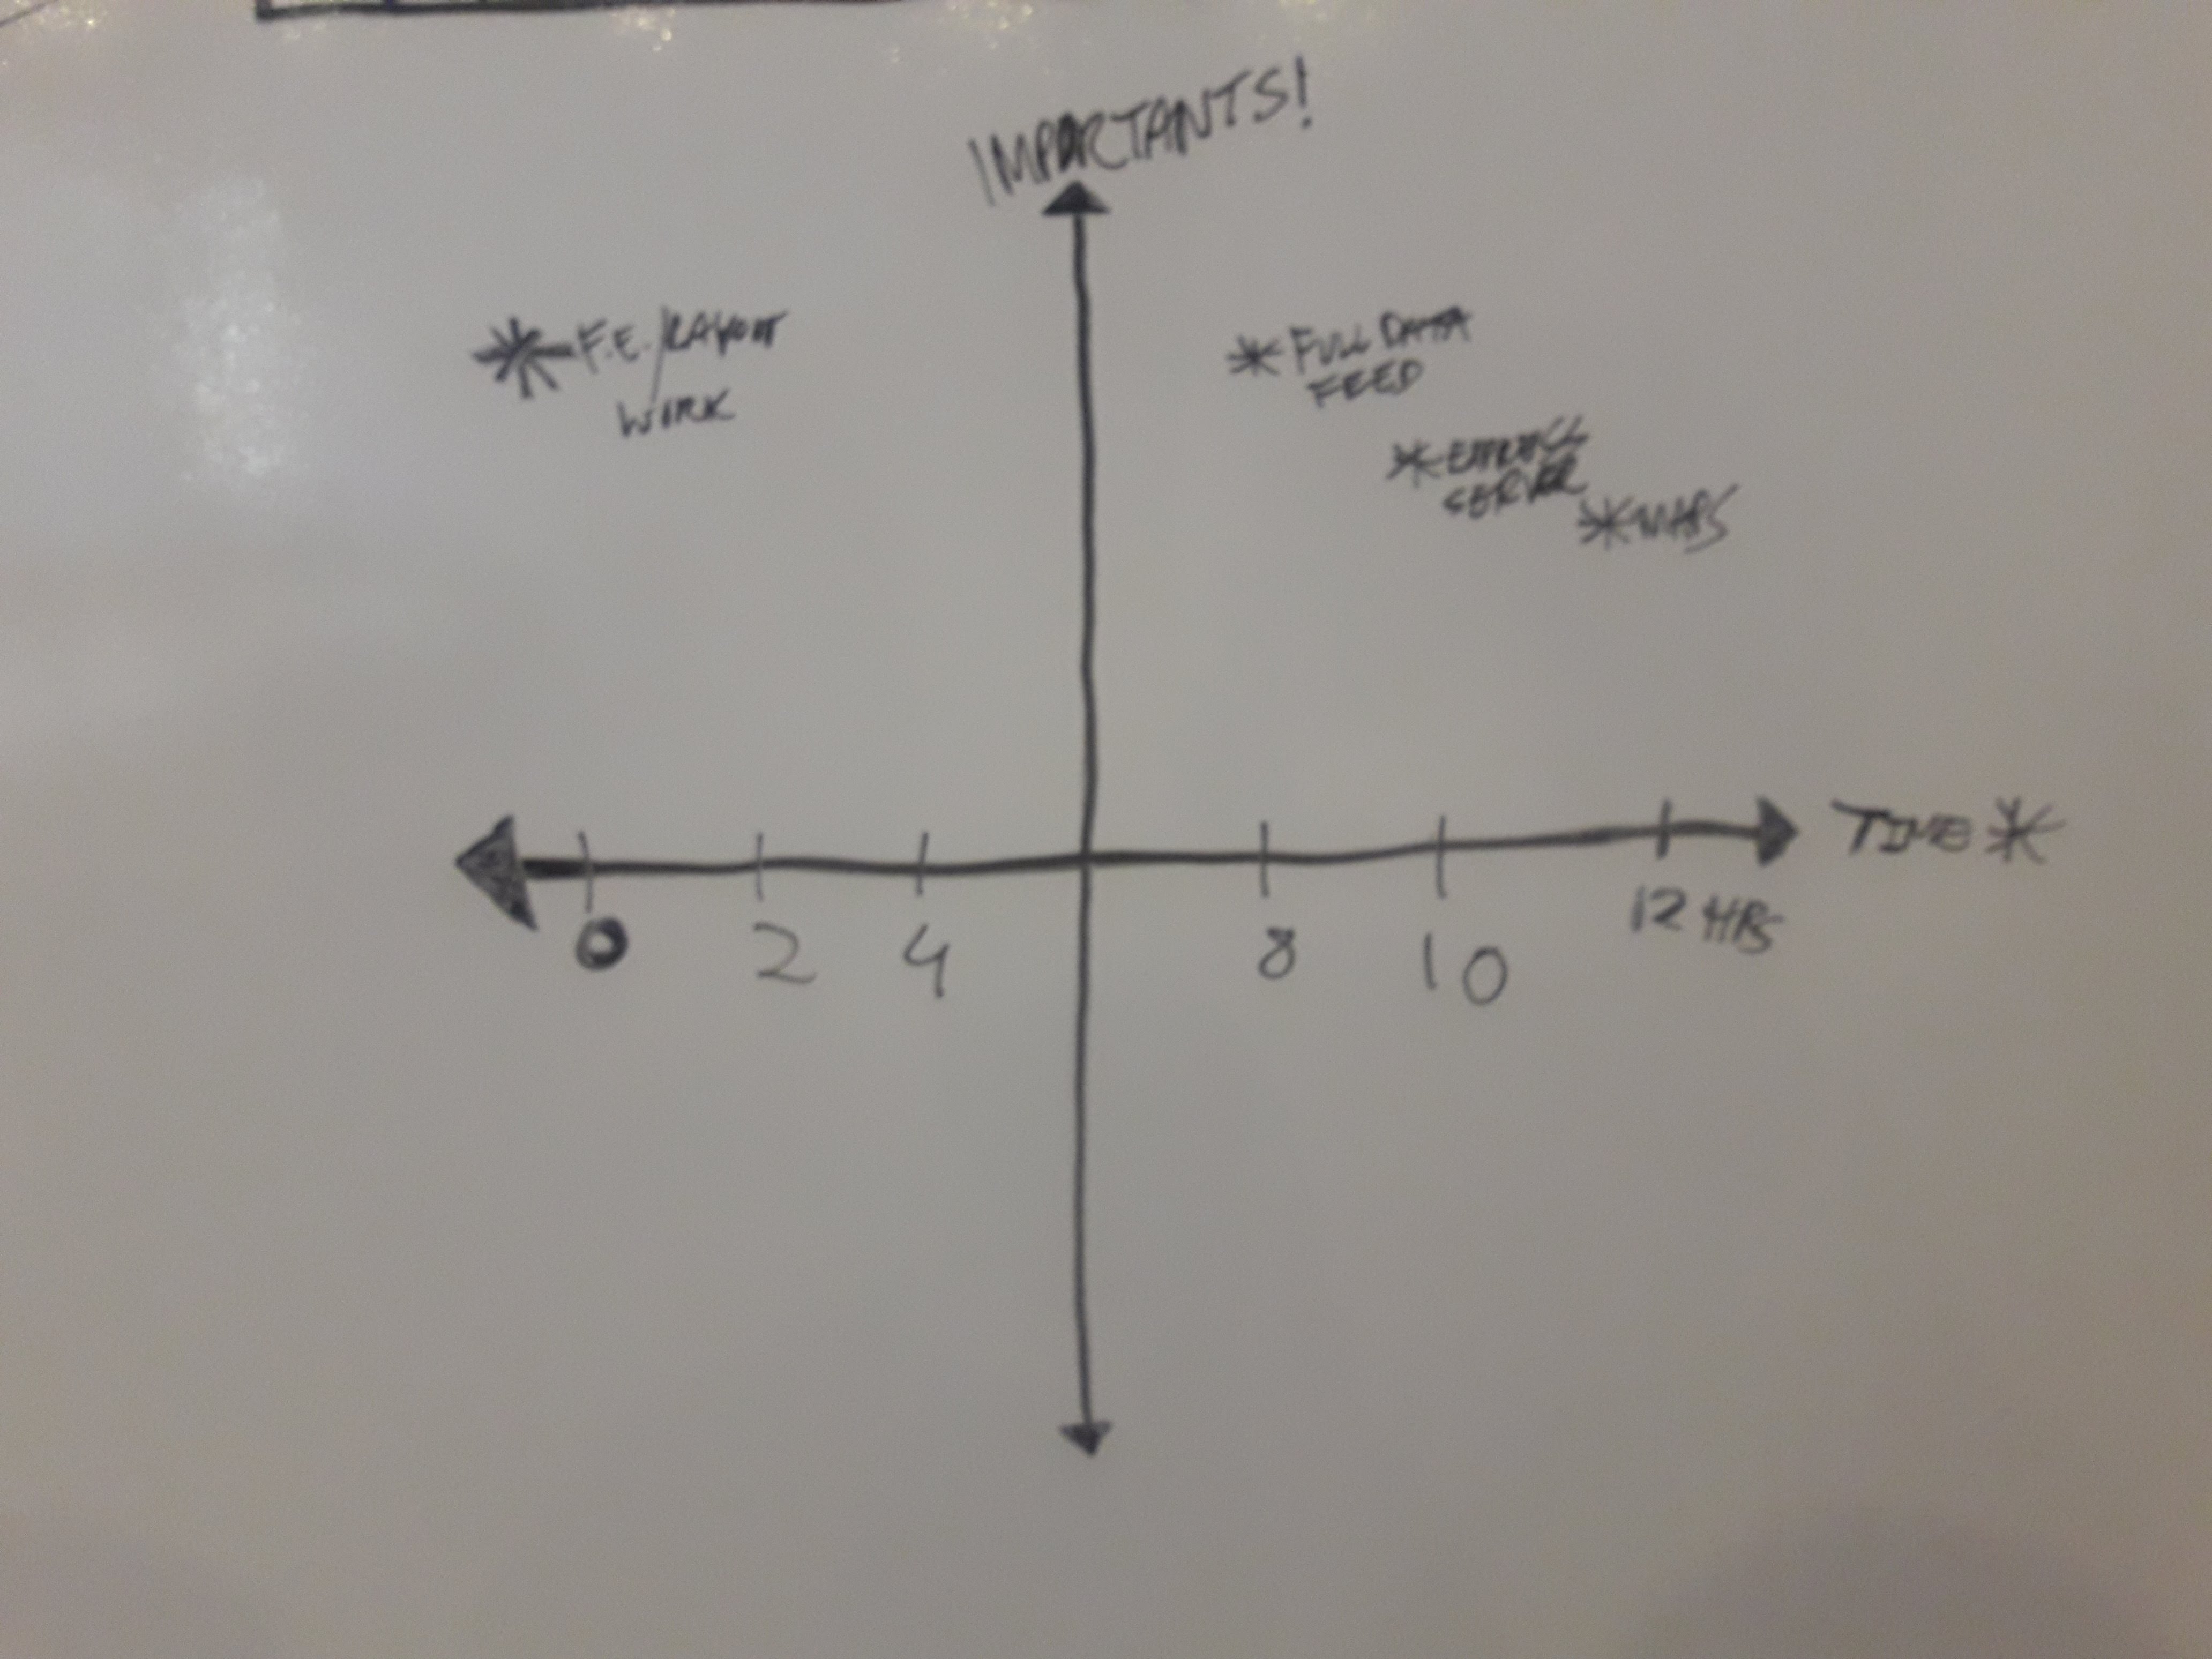 IMPORTANTS!
F.E./LAYOUT
WORK
FULL DATA
FEED
SERVER
MAPS
TIME
0 2 4 8 10 12 HRS